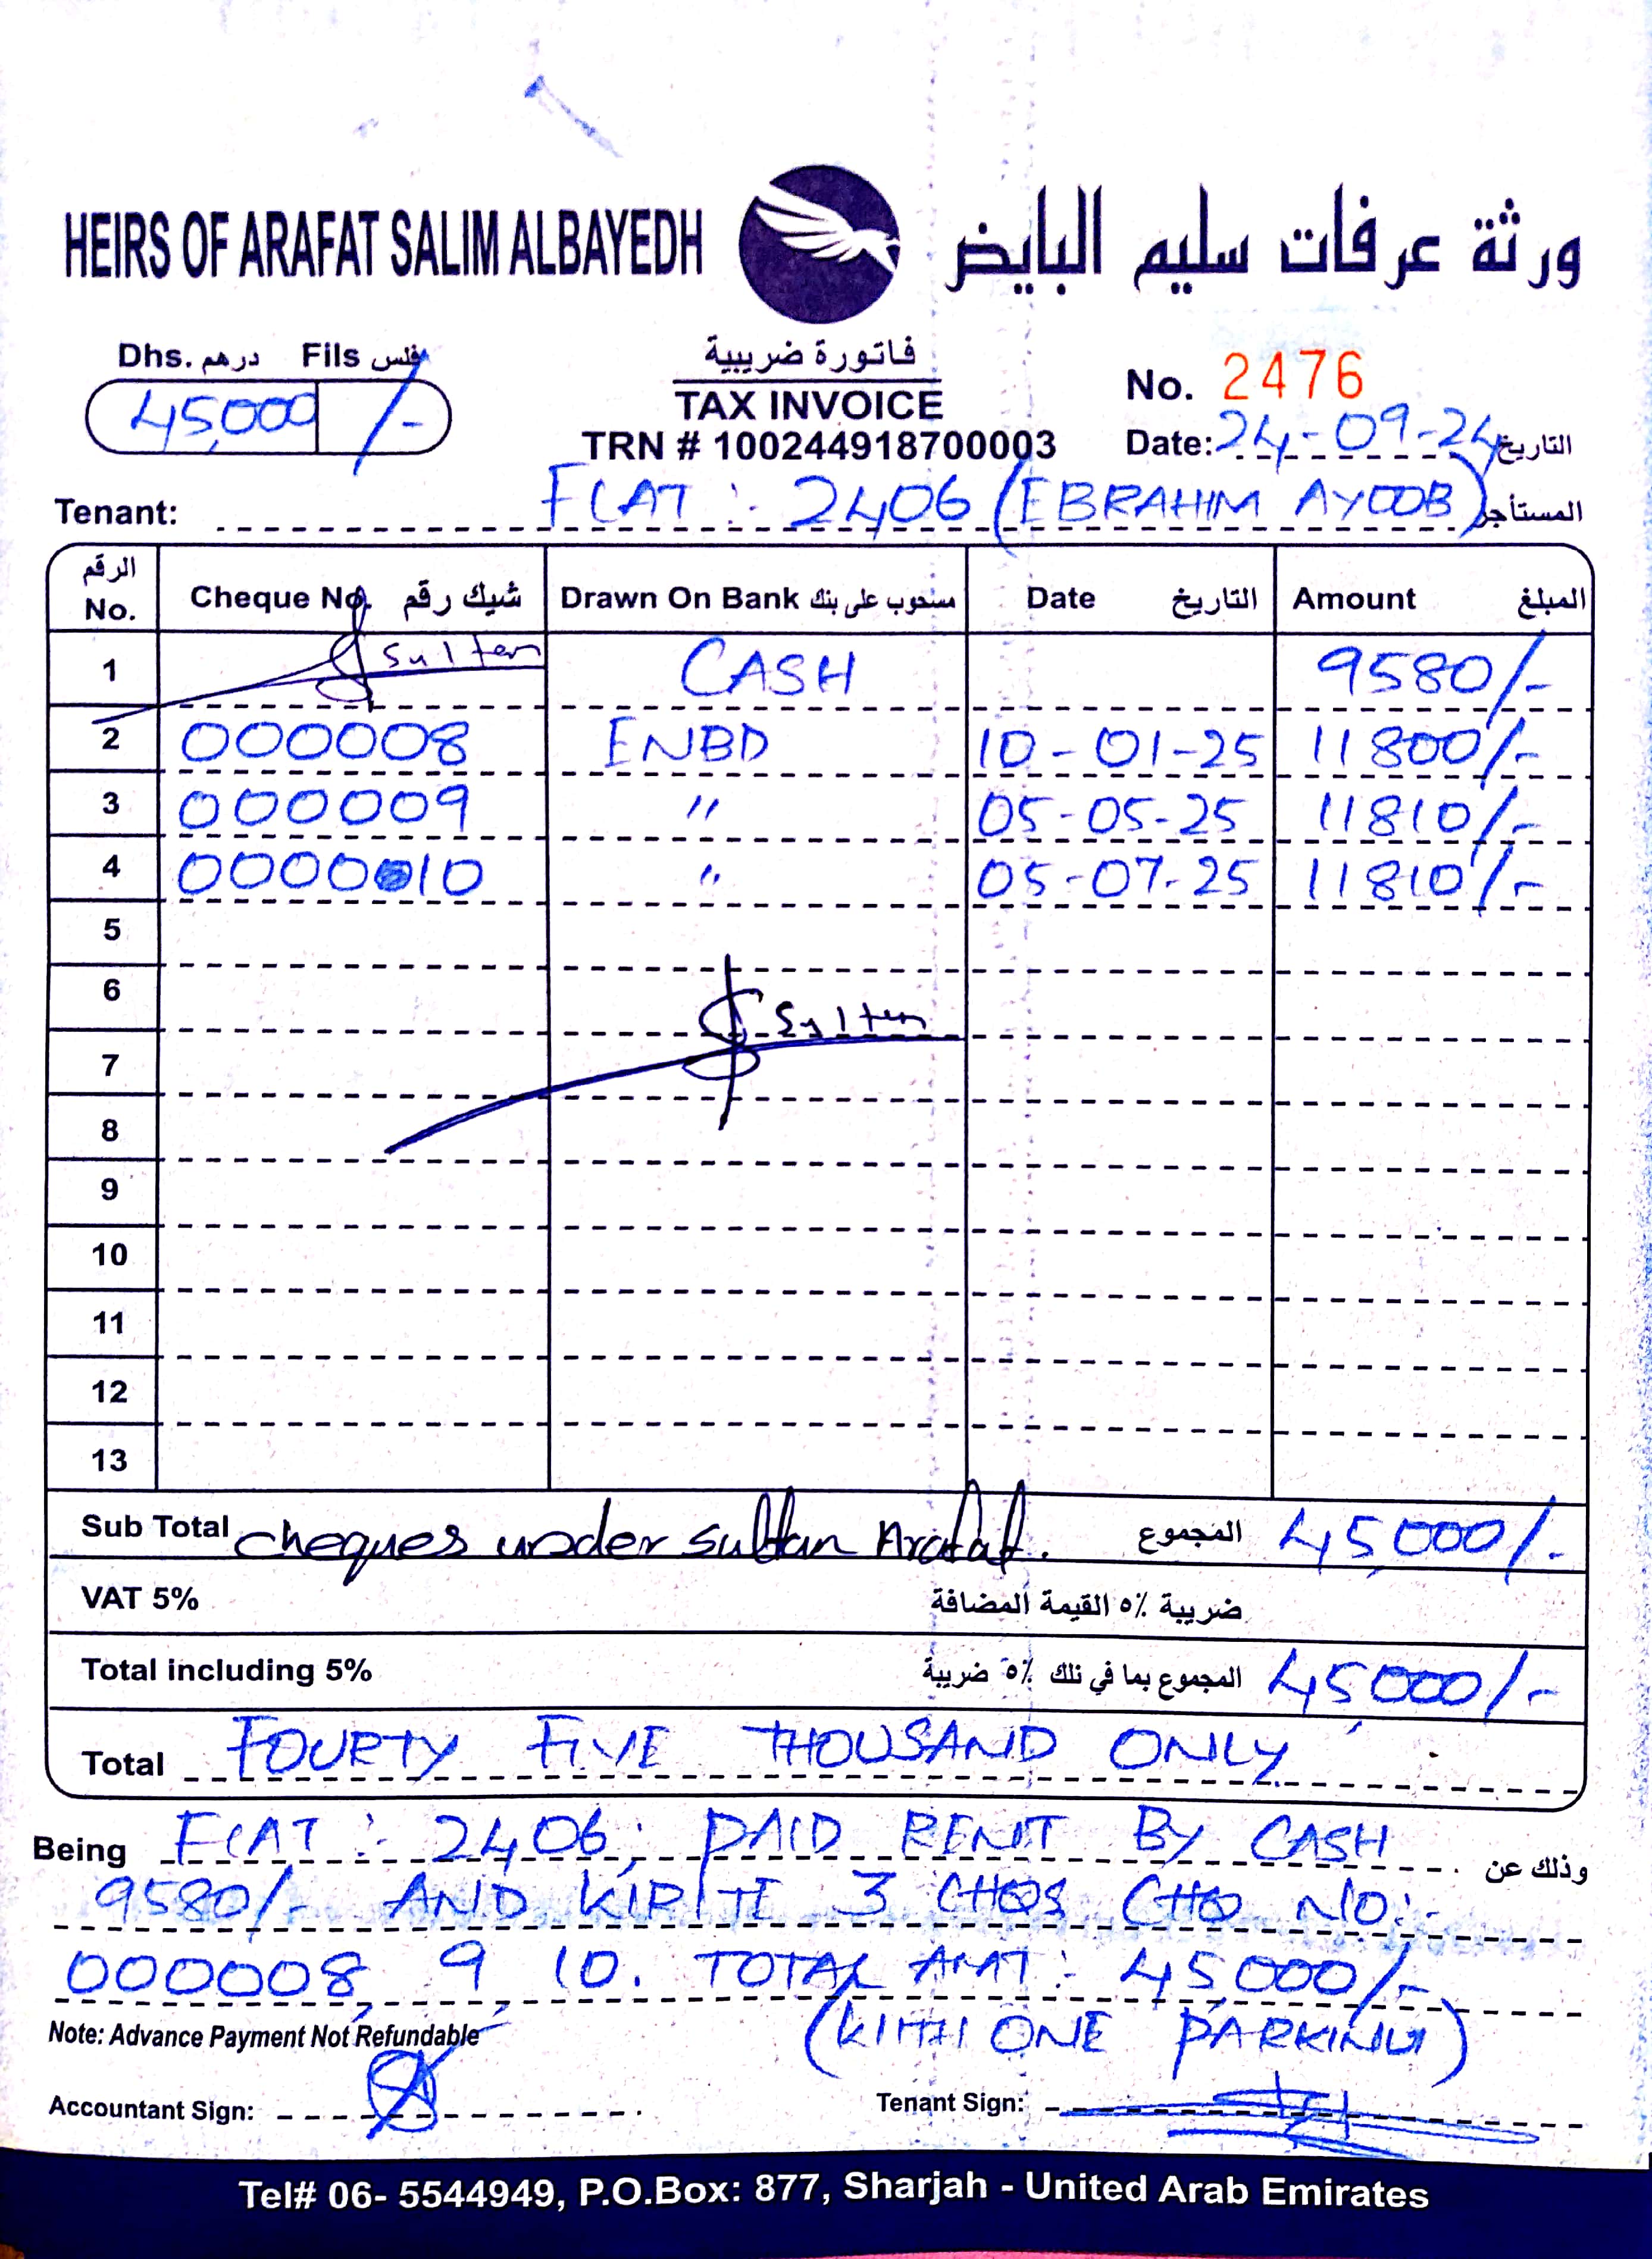 HEIRS OF ARAFAT SALIM ALBAYEDH ورثة عرفات سليم البايض
Dhs. درهم Fils فلس
45,000 /-
فاتورة ضريبية
TAX INVOICE
TRN # 100244918700003
No. 2476
Date: 24-09-24 التاريخ
Tenant: FLAT : 2406 (EBRAHIM AYOOB) المستأجر
الرقم No. Cheque No. شيك رقم Drawn On Bank مسحوب على بنك Date التاريخ Amount المبلغ
1 Sultan CASH 9580/-
2 000008 ENBD 10-01-25 11800/-
3 000009 " 05-05-25 11810/-
4 0000010 " 05-07-25 11810/-
5
6 Sultan
7
8
9
10
11
12
13
Sub Total cheques under sultan Arafat. المجموع 45,000/-
VAT 5% ضريبة ٥٪ القيمة المضافة
Total including 5% المجموع بما في ذلك ٥٪ ضريبة 45000/-
Total FOURTY FIVE THOUSAND ONLY
Being FLAT : 2406, PAID RENT BY CASH وذلك عن
9580/- AND 3 CHQS CHQ NO:-
000008, 9, 10. TOTAL AMT : 45,000/-
Note: Advance Payment Not Refundable
( ONE PARKING)
Accountant Sign: Tenant Sign:
Tel# 06- 5544949, P.O.Box: 877, Sharjah - United Arab Emirates